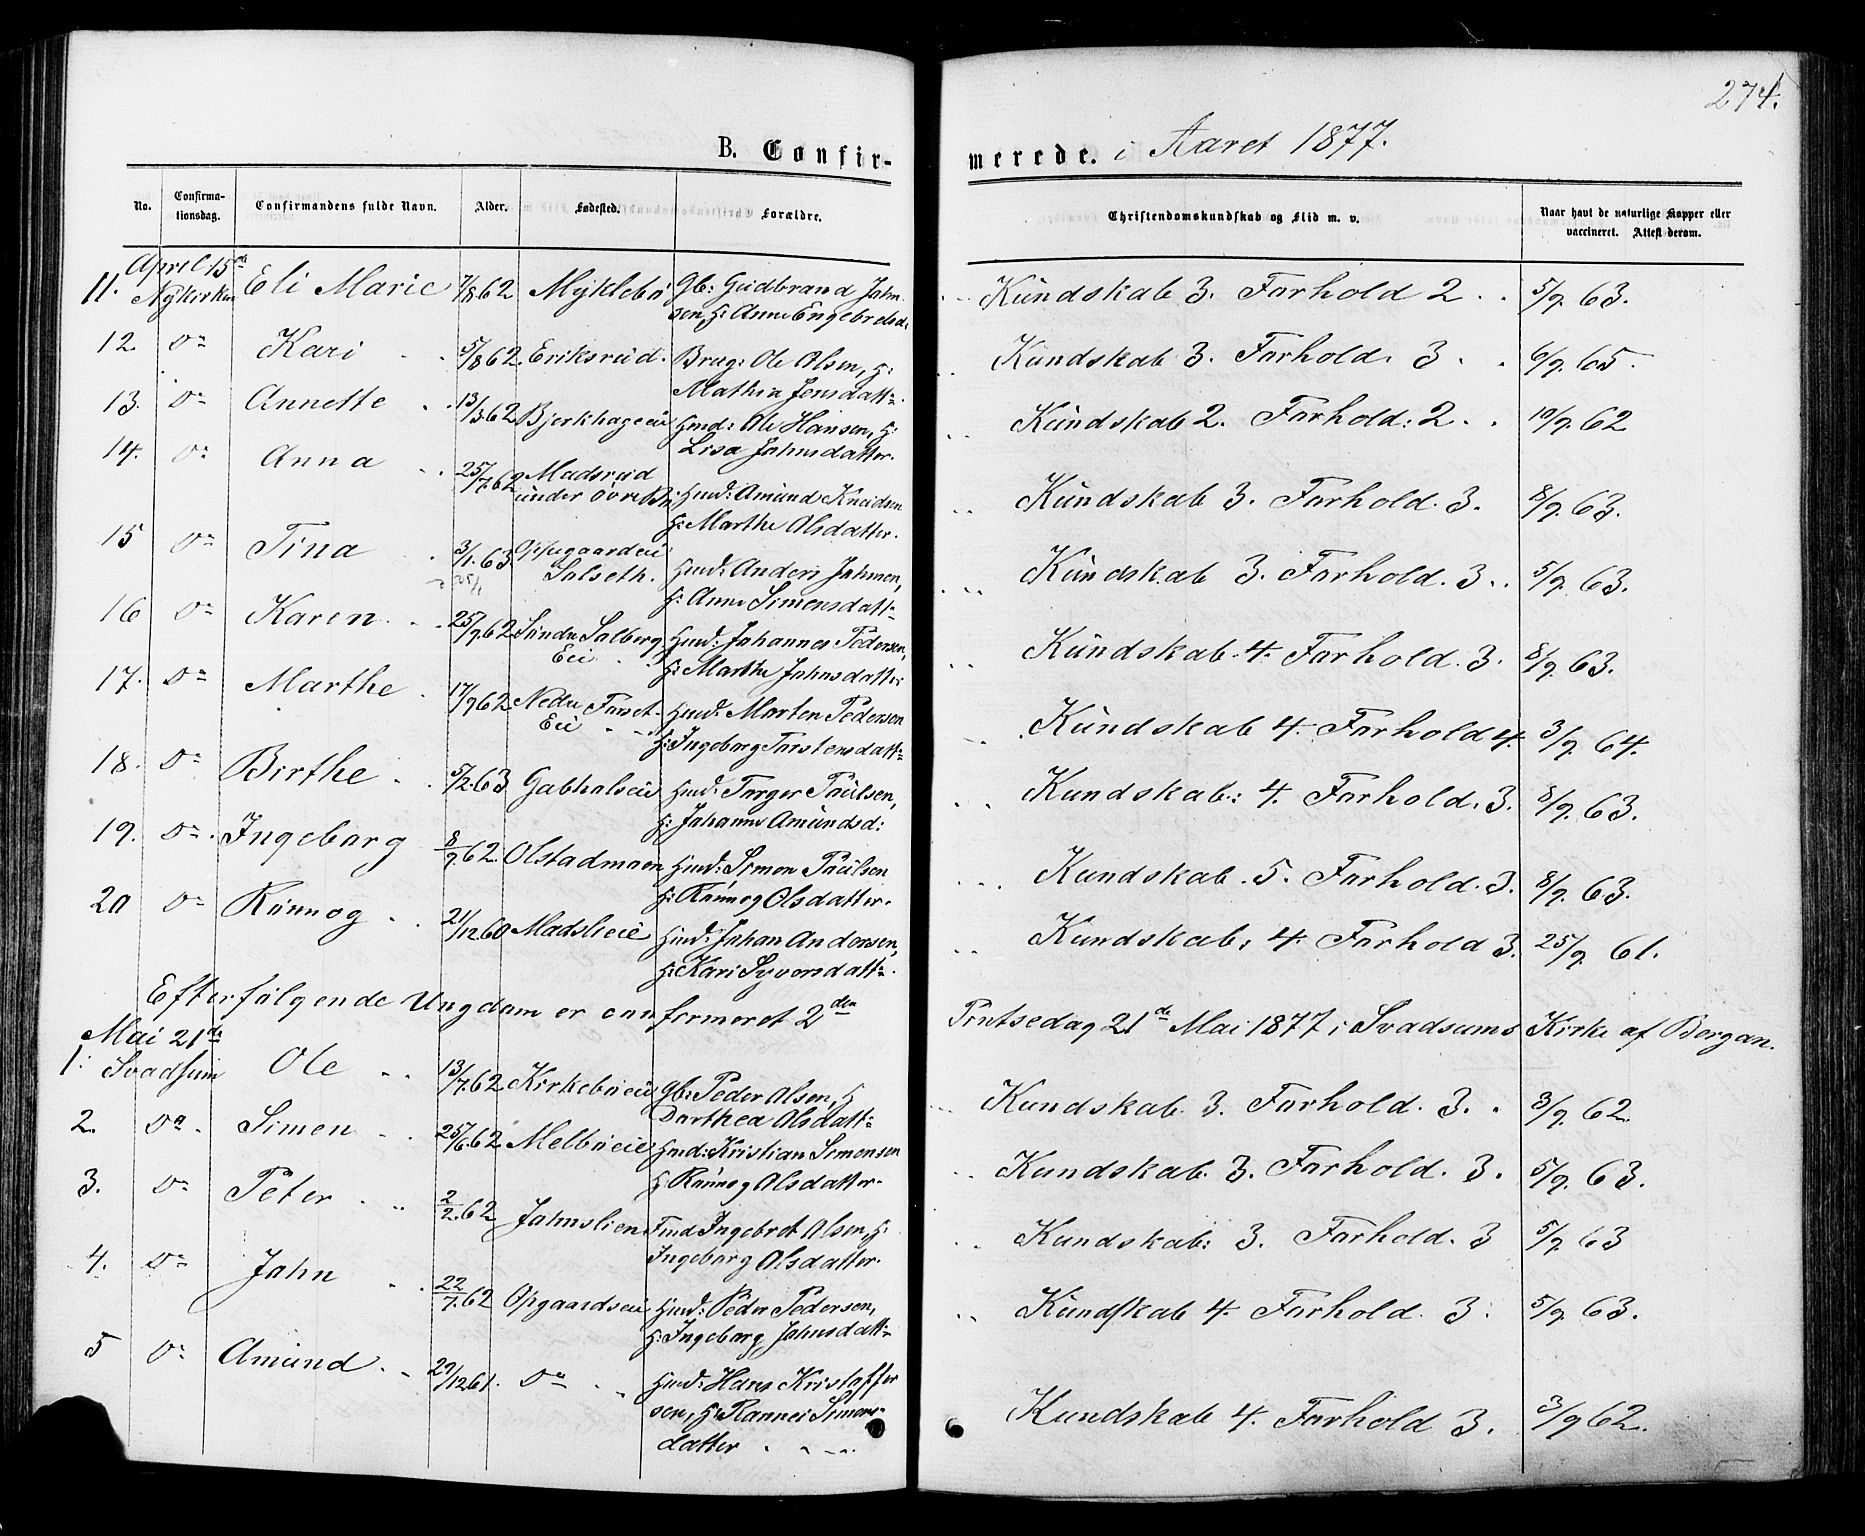 274.
B. Confirmerede. i Aaret 1877.
No. Confirmationsdag. Confirmandens fulde Navn. Alder. Fødested. Forældre. Christendomskundskab og Flid m. v. Naar havt de naturlige Kopper eller vaccineret. Attest derom.
April 15de
11. Nykirken Eli Marie 7/8 62 Myklebø Gb: Gudbrand Johnsen, H: Anne Engebretsd: Kundskab 3. Forhold 2. 5/9. 63.
12. Do Kari 5/8 62. Eriksrud. Brug: Ole Olsen, H: Mathia Jensdattr. Kundskab 3. Forhold. 3. 6/9. 65.
13. Do Annette 13/3 62 Bjerkhageeie Hmd: Ole Hansen, H: Lisa Johnsdatter. Kundskab 2. Forhold: 2. 10/9. 62
14. Do Anna 25/7. 62 Madsrud under øvre Bø Hmd: Amund Knudsen H: Marthe Olsdatter. Kundskab 3. Forhold. 3. 8/9. 63.
15 Do Tina 3/1. 63. Salseth. Hmd: Anders Johnsen, H: Anne Simensdattr Kundskab 3. Forhold. 3. 5/9. 63.
25/1
16 Do Karen 25/9. 62 Søndre Solberg Eie Hmd: Johannes Pedersen, H: Marthe Johnsdatter Kundskab. 4. Forhold. 3. 8/9. 63.
17. Do Marthe 17/9 62 Nedre Forset Eie Hmd: Morten Pedersen H: Ingeborg Torstensdattr Kundskab 4. Forhold 4. 3/9. 64.
18. Do Birthe 5/2. 63 Gabholseie Hmd: Torger Paulsen, H: Johanne Amundsd: Kundskab: 4. Forhold. 3. 8/9. 63.
19. Do Ingeborg 8/9. 62. Olstadmoen Hmd: Simon Paulsen H: Rønnog Olsdatter. Kundskab. 5. Forhold. 3. 8/9. 63.
20 Do Rønnog 21/12 60 Madslieeie Hmd: Johan Andersen, H: Kari Syversdattr. Kundskab: 4. Forhold 3. 25/9. 61.
Efterfølgende Ungdom er confirmeret 2den Pintsedag 21de Mai 1877 i Svadsums Kirke af Borgan.
Mai 21de
1. Svadsum Ole 13/7. 62 Kirkebøeie Gb: Peder Olsen, H Dorthea Olsdattr Kundskab. 3. Forhold. 3. 3/9. 62.
2. Do Simen 25/6. 62 Melbøeie Hmd: Kristian Simensen H Rønnog Olsdatter. Kundskab. 3. Forhold. 3. 5/9. 63.
3. Do Peter 2/2. 62 Johnslien Fmd Ingebret Olsen, H. Ingeborg Olsdatter. Kundskab: 3. Forhold. 3 5/9. 63
4. Do John 22/7. 62 Opgaardseie Hmd: Peder Pedersen, H: Ingeborg Johnsdattr Kundskab 4. Forhold 3. 5/9. 63.
5 Do Amund 29/12 61. Do Hmd: Hans Kristoffersen, H: Rannei Simensdatter Kundskab 4. Forhold 3. 3/9 62.